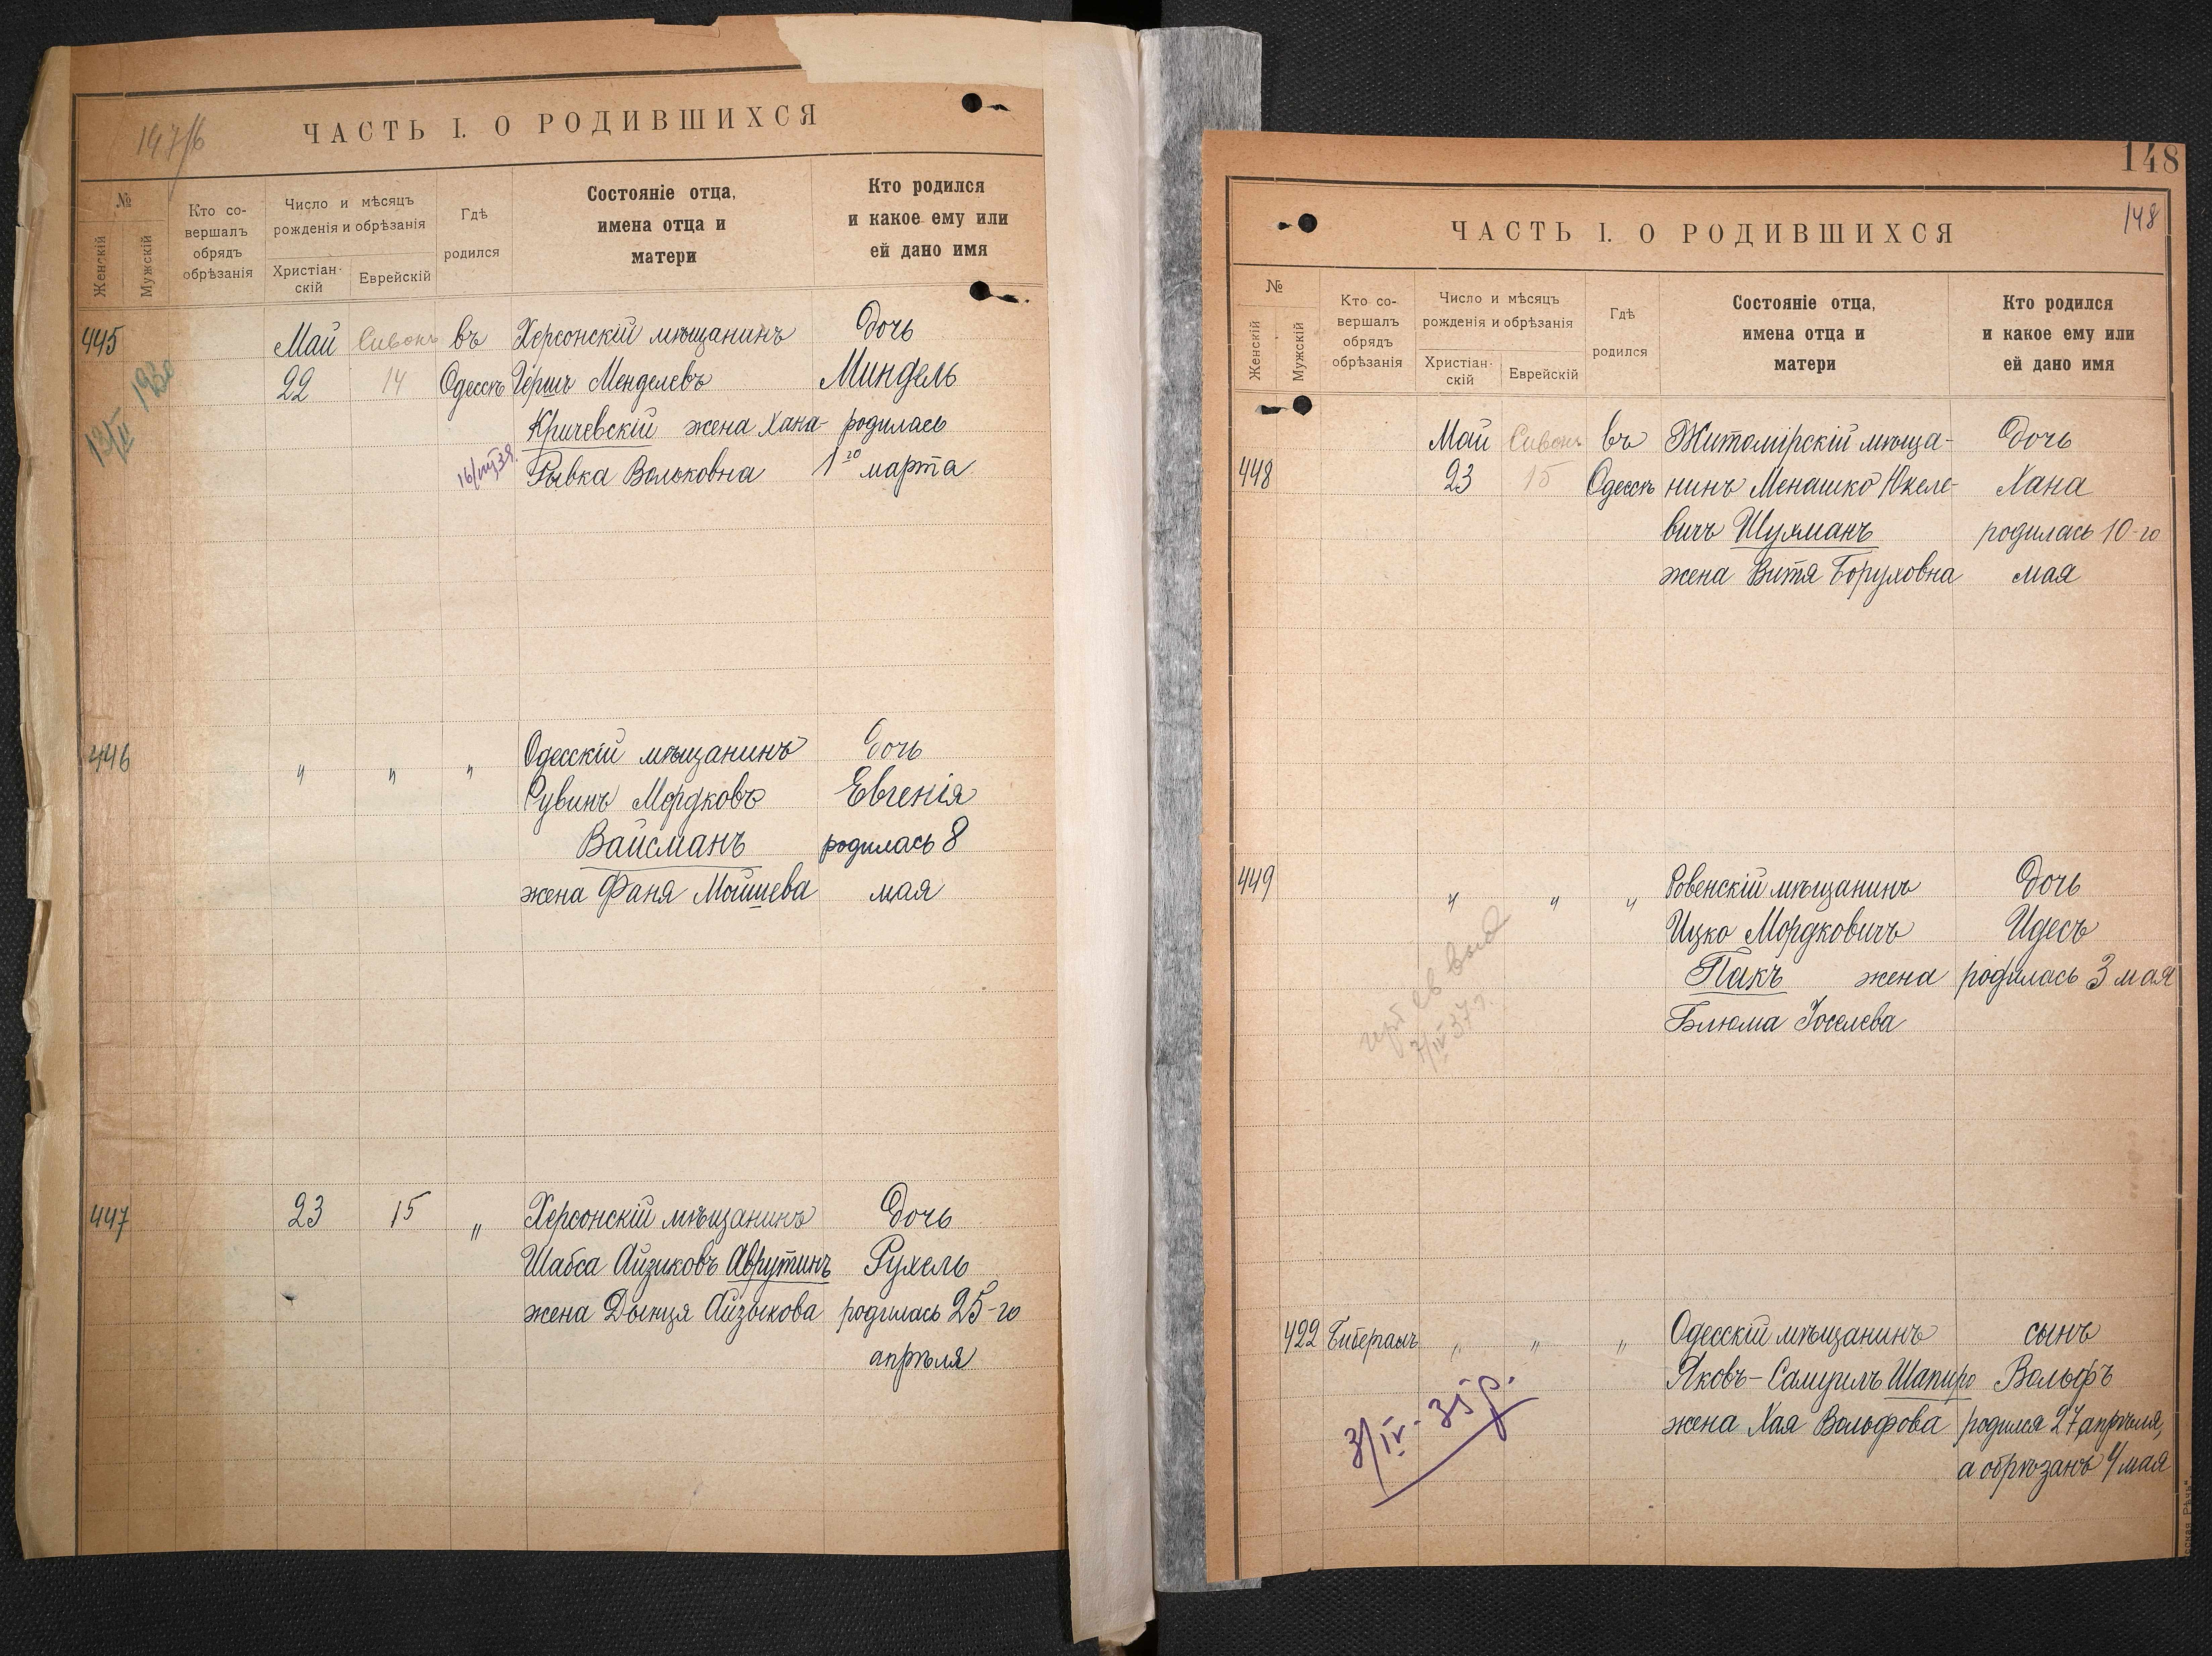 147/б
ЧАСТЬ I. О РОДИВШИХСЯ
№
Женскій
Мужскій
Кто со-
вершалъ
обрядъ
обрѣзанія
Число и мѣсяцъ
рожденія и обрѣзанія
Христіан-
скій
Еврейскій
Гдѣ
родился
Состояніе отца,
имена отца и
матери
Кто родился
и какое ему или
ей дано имя
445 Май Сивонъ въ Херсонскій мѣщанинъ Дочь
22 14 Одессѣ Гершъ Менделевъ Миндель
Кричевскій жена Хана- родилась
Рывка Вольковна 1го марта
446 " " " Одесскій мѣщанинъ Дочь
Рувинъ Мордковъ Евгенія
Вайсманъ родилась 8
жена Фаня Мойшева мая
447 23 15 " Херсонскій мѣщанинъ Дочь
Шабса Айзиковъ Аврутинъ Рухель
жена Дынця Айзыкова родилась 25-го
апрѣля
148
148
ЧАСТЬ I. О РОДИВШИХСЯ
№
Женскій
Мужскій
Кто со-
вершалъ
обрядъ
обрѣзанія
Число и мѣсяцъ
рожденія и обрѣзанія
Христіан-
скій
Еврейскій
Гдѣ
родился
Состояніе отца,
имена отца и
матери
Кто родился
и какое ему или
ей дано имя
Май Сивонъ въ Житомірскій мѣща- Дочь
448 23 15 Одессѣ нинъ Менашко Юкеле- Хана
вичъ Шухманъ родилась 10-го
жена Витя Боруховна мая
449 " " " Ровенскій мѣщанинъ Дочь
Ицко Мордковичъ Идесъ
Пакъ жена родилась 3 мая
Блюма Іоселева
7/IV 37 г.
422 Бибергалъ " " " Одесскій мѣщанинъ сынъ
Яковъ-Самуилъ Шапиро Вольфъ
жена Хая Вольфова родился 27 апрѣля,
а обрѣзанъ 4 мая
3/IV-35 р.